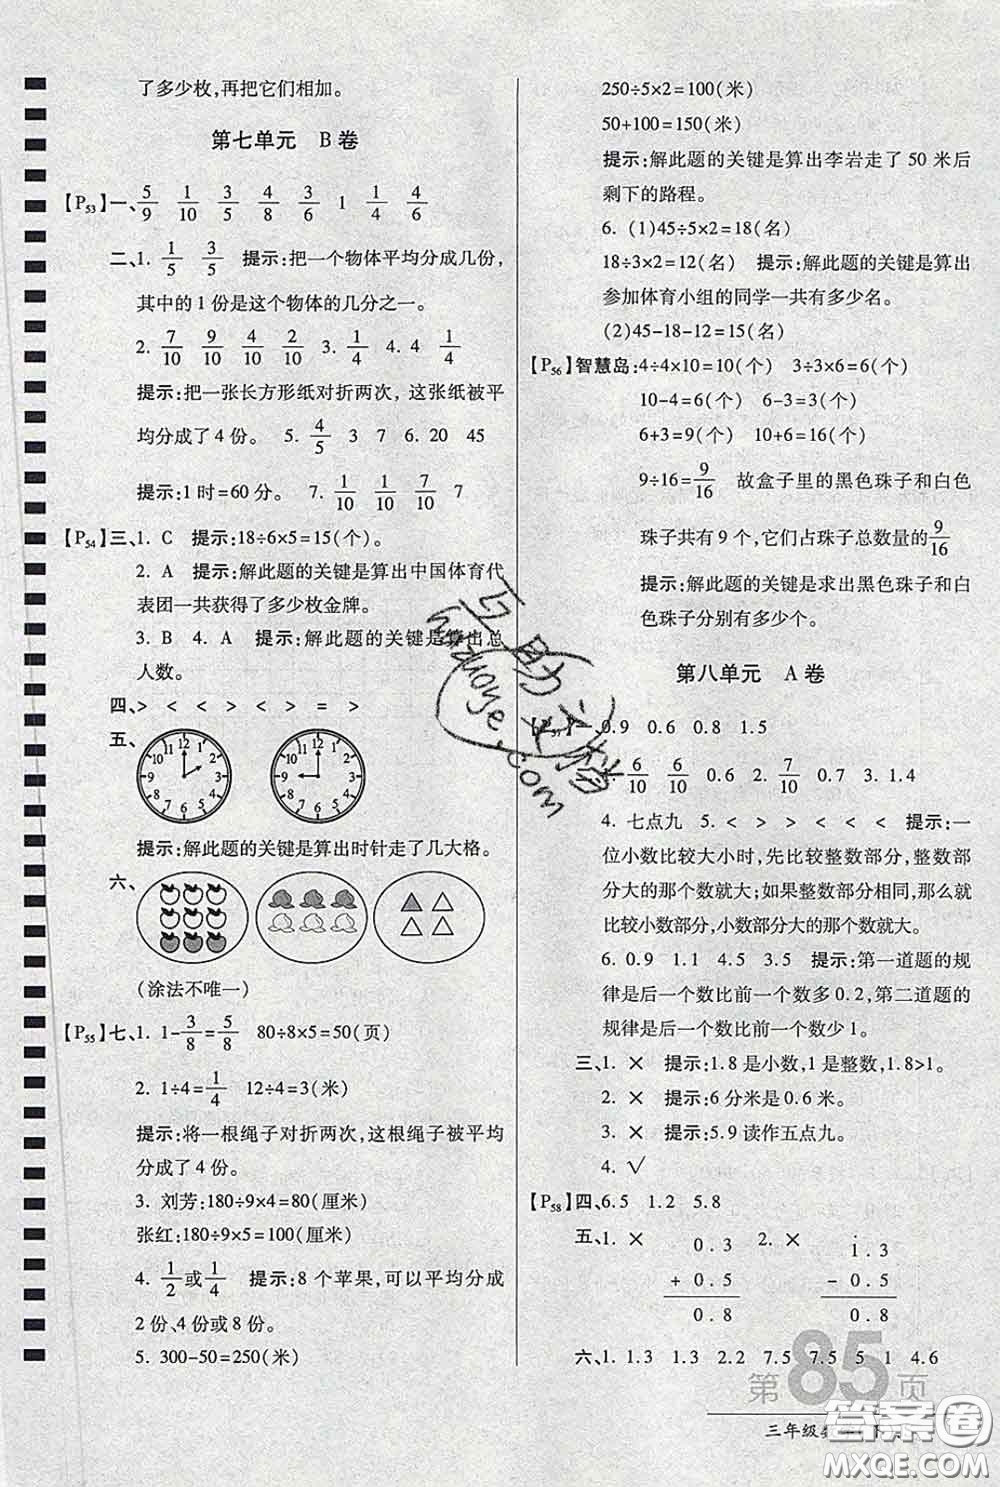 了多少枚,再把它们相加。
第七单元 B卷
【P53】一、5/9 1/10 3/5 4/8 3/6 1 1/4 4/6
二、1. 1/5 3/5 提示:把一个物体平均分成几份,
其中的1份是这个物体的几分之一。
2. 7/10 9/10 4/10 2/10 3. 1/4 4. 4 1/4
提示:把一张长方形纸对折两次,这张纸被平
均分成了4份。 5. 4/5 3 7 6. 20 45
提示:1时=60分。 7. 1/10 1/10 1/10 7
【P54】三、1. C 提示:18÷6×5=15(个)。
2. A 提示:解此题的关键是算出中国体育代
表团一共获得了多少枚金牌。
3. B 4. A 提示:解此题的关键是算出总
人数。
四、> < < > < > = >
五、
12 1 2 3 4 5 6 7 8 9 10 11
12 1 2 3 4 5 6 7 8 9 10 11
提示:解此题的关键是算出时针走了几大格。
六、
(涂法不唯一)
【P55】七、1. 1-3/8=5/8 80÷8×5=50(页)
2. 1÷4=1/4 12÷4=3(米)
提示:将一根绳子对折两次,这根绳子被平均
分成了4份。
3. 刘芳:180÷9×4=80(厘米)
张红:180÷9×5=100(厘米)
4. 1/2或1/4 提示:8个苹果,可以平均分成
2份、4份或8份。
5. 300-50=250(米)
250÷5×2=100(米)
50+100=150(米)
提示:解此题的关键是算出李岩走了50米后
剩下的路程。
6. (1)45÷5×2=18(名)
18÷3×2=12(名) 提示:解此题的关键是算出
参加体育小组的同学一共有多少名。
(2)45-18-12=15(名)
【P56】智慧岛:4÷4×10=10(个) 3÷3×6=6(个)
10-4=6(个) 6-3=3(个)
6+3=9(个) 10+6=16(个)
9÷16=9/16 故盒子里的黑色珠子和白色
珠子共有9个,它们占珠子总数量的9/16
提示:解此题的关键是求出黑色珠子和白
色珠子分别有多少个。
第八单元 A卷
0.9 0.6 0.8 1.5
6/10 6/10 0.6 2. 7/10 0.7 3. 1.4
4. 七点九 5. < > > < < < 提示:一
位小数比较大小时,先比较整数部分,整数部
分大的那个数就大;如果整数部分相同,那么就
比较小数部分,小数部分大的那个数就大。
6. 0.9 1.1 4.5 3.5 提示:第一道题的规
律是后一个数比前一个数多0.2,第二道题的
规律是后一个数比前一个数少1。
三、1. × 提示:1.8是小数,1是整数,1.8>1。
2. × 提示:6分米是0.6米。
3. × 提示:5.9读作五点九。
4. √
【P58】四、6.5 1.2 5.8
五、1. × 2. ×
0.3 1.3
+ 0.5 - 0.5
0.8 0.8
六、1. 1.3 1.3 2.2 7.5 7.5 5 1 4.6
第85页
三年级数
答案圈
MXQE.COM
互助文档
huzuoye.com